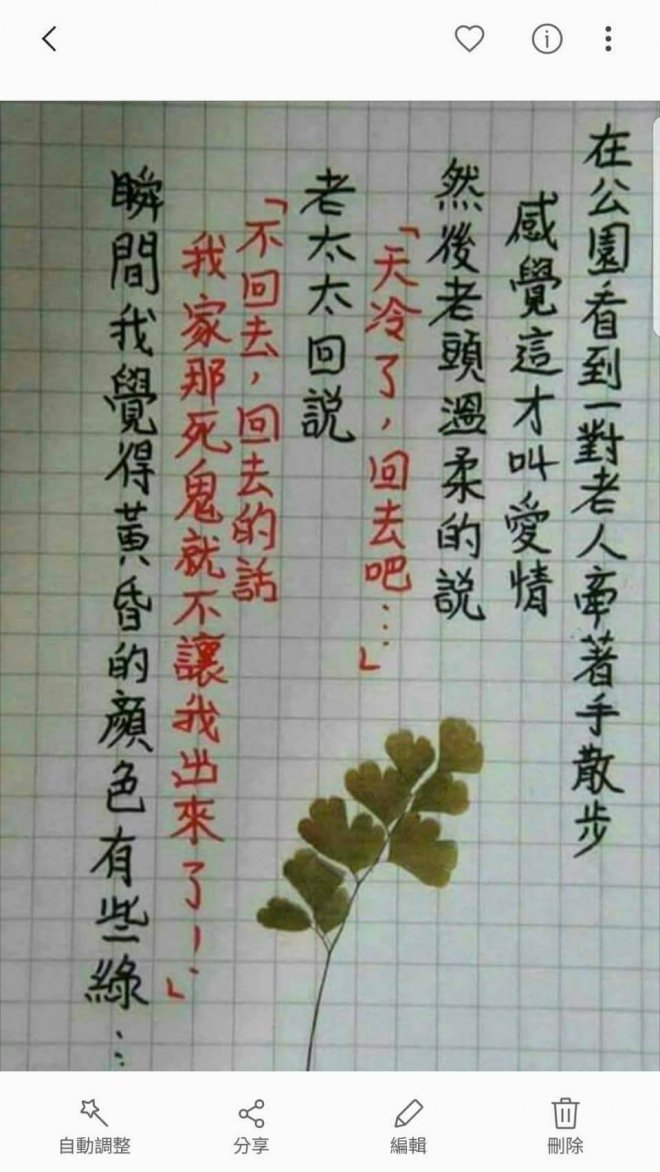 在公園看到一對老人牽著手散步
感覺這才叫愛情
然後老頭溫柔的説
「天冷了，回去吧…」
老太太回説
「不回去，回去的話
我家那死鬼就不讓我出來了！」
瞬間我覺得黃昏的顏色有些綠…
自動調整
分享
編輯
刪除